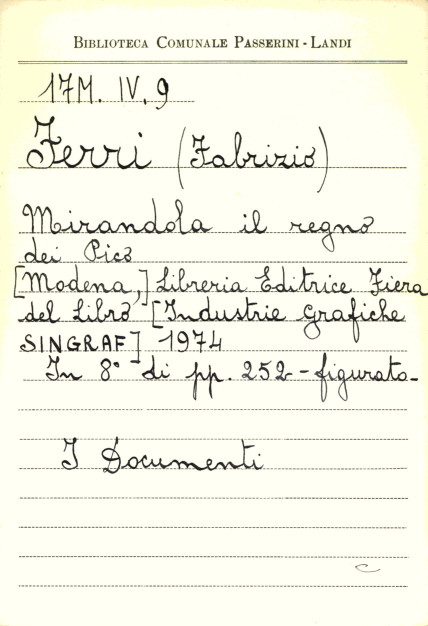 BIBLIOTECA COMUNALE PASSERINI - LANDI
17M. IV. 9
Ferri (Fabrizio)
Mirandola il regno
dei Pico
[Modena,] Libreria Editrice Fiera
del Libro [Industrie Grafiche
SINGRAF] 1974
In 8° di pp. 252 - figurato -
I Documenti